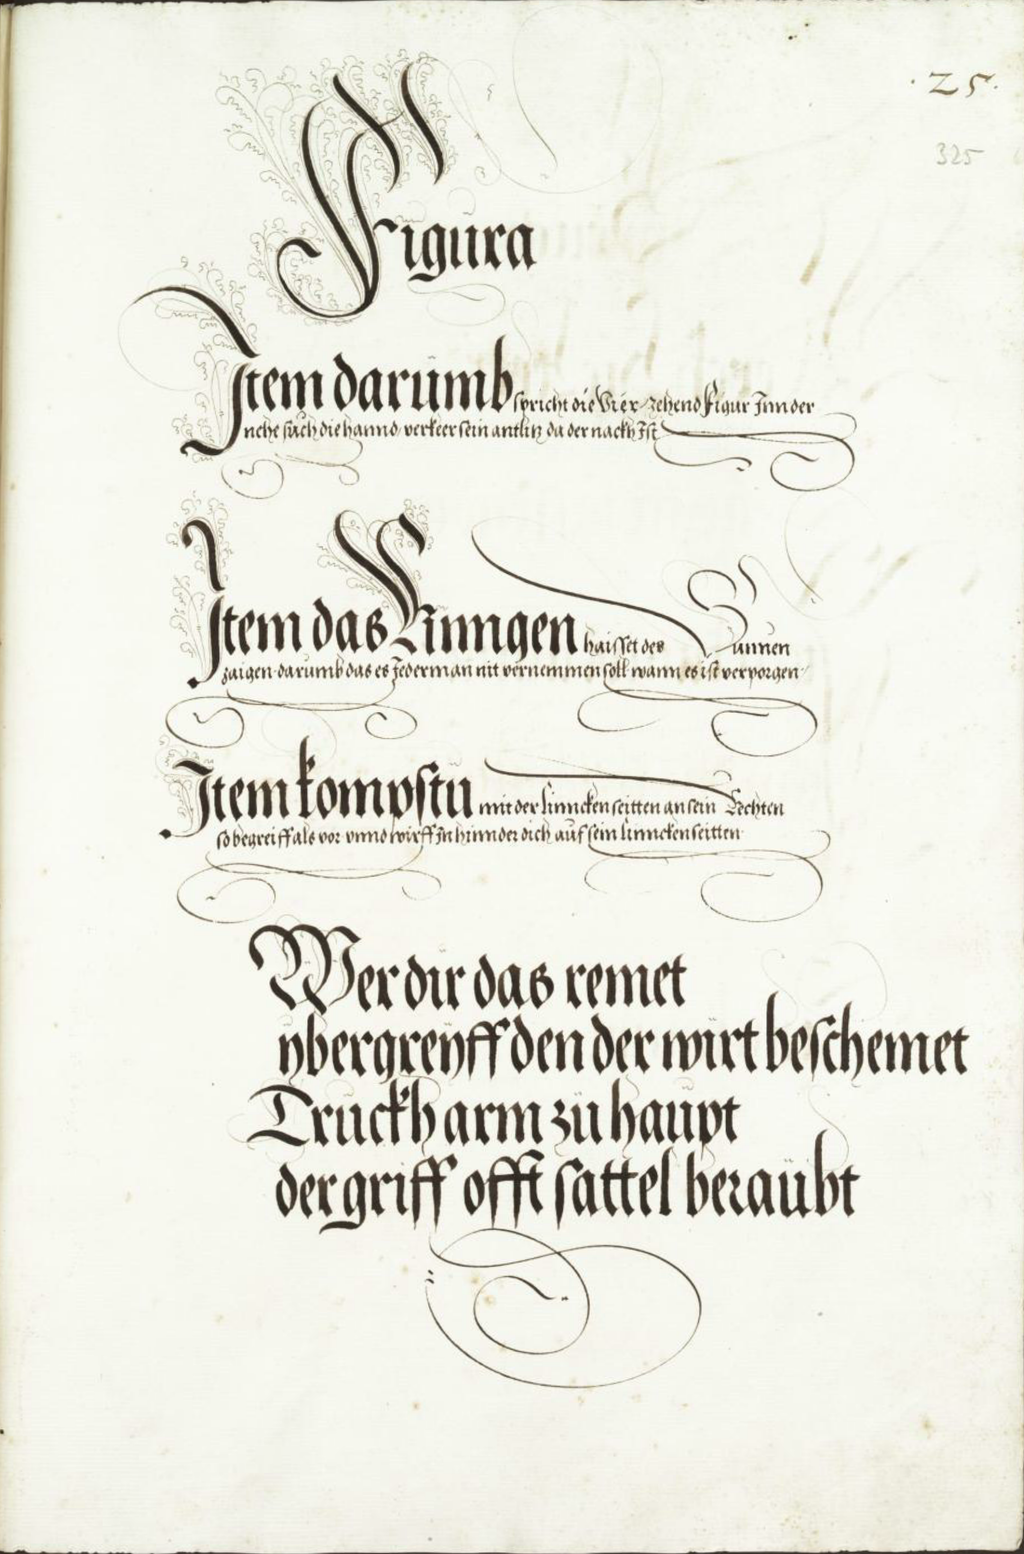 ·25·
325
Figura
Item darumb spricht die Vier zehend Figur Inn der
nehe sůch die hannd verkeer sein antlitz da der nackh Ist
Item das Ringen haisset des Sunnen
zaigen darumb das es Jederman nit vernemmen soll wann es ist verporgen
Item kompstu mit der linncken seitten an sein Rechten
so begreiff als vor vnnd wirff In hinnder dich auf sein linncken seitten
Wer dir das remet
ybergreyff den der wirt beschemet
Truckh arm zu haupt
der griff offt sattel beraubt